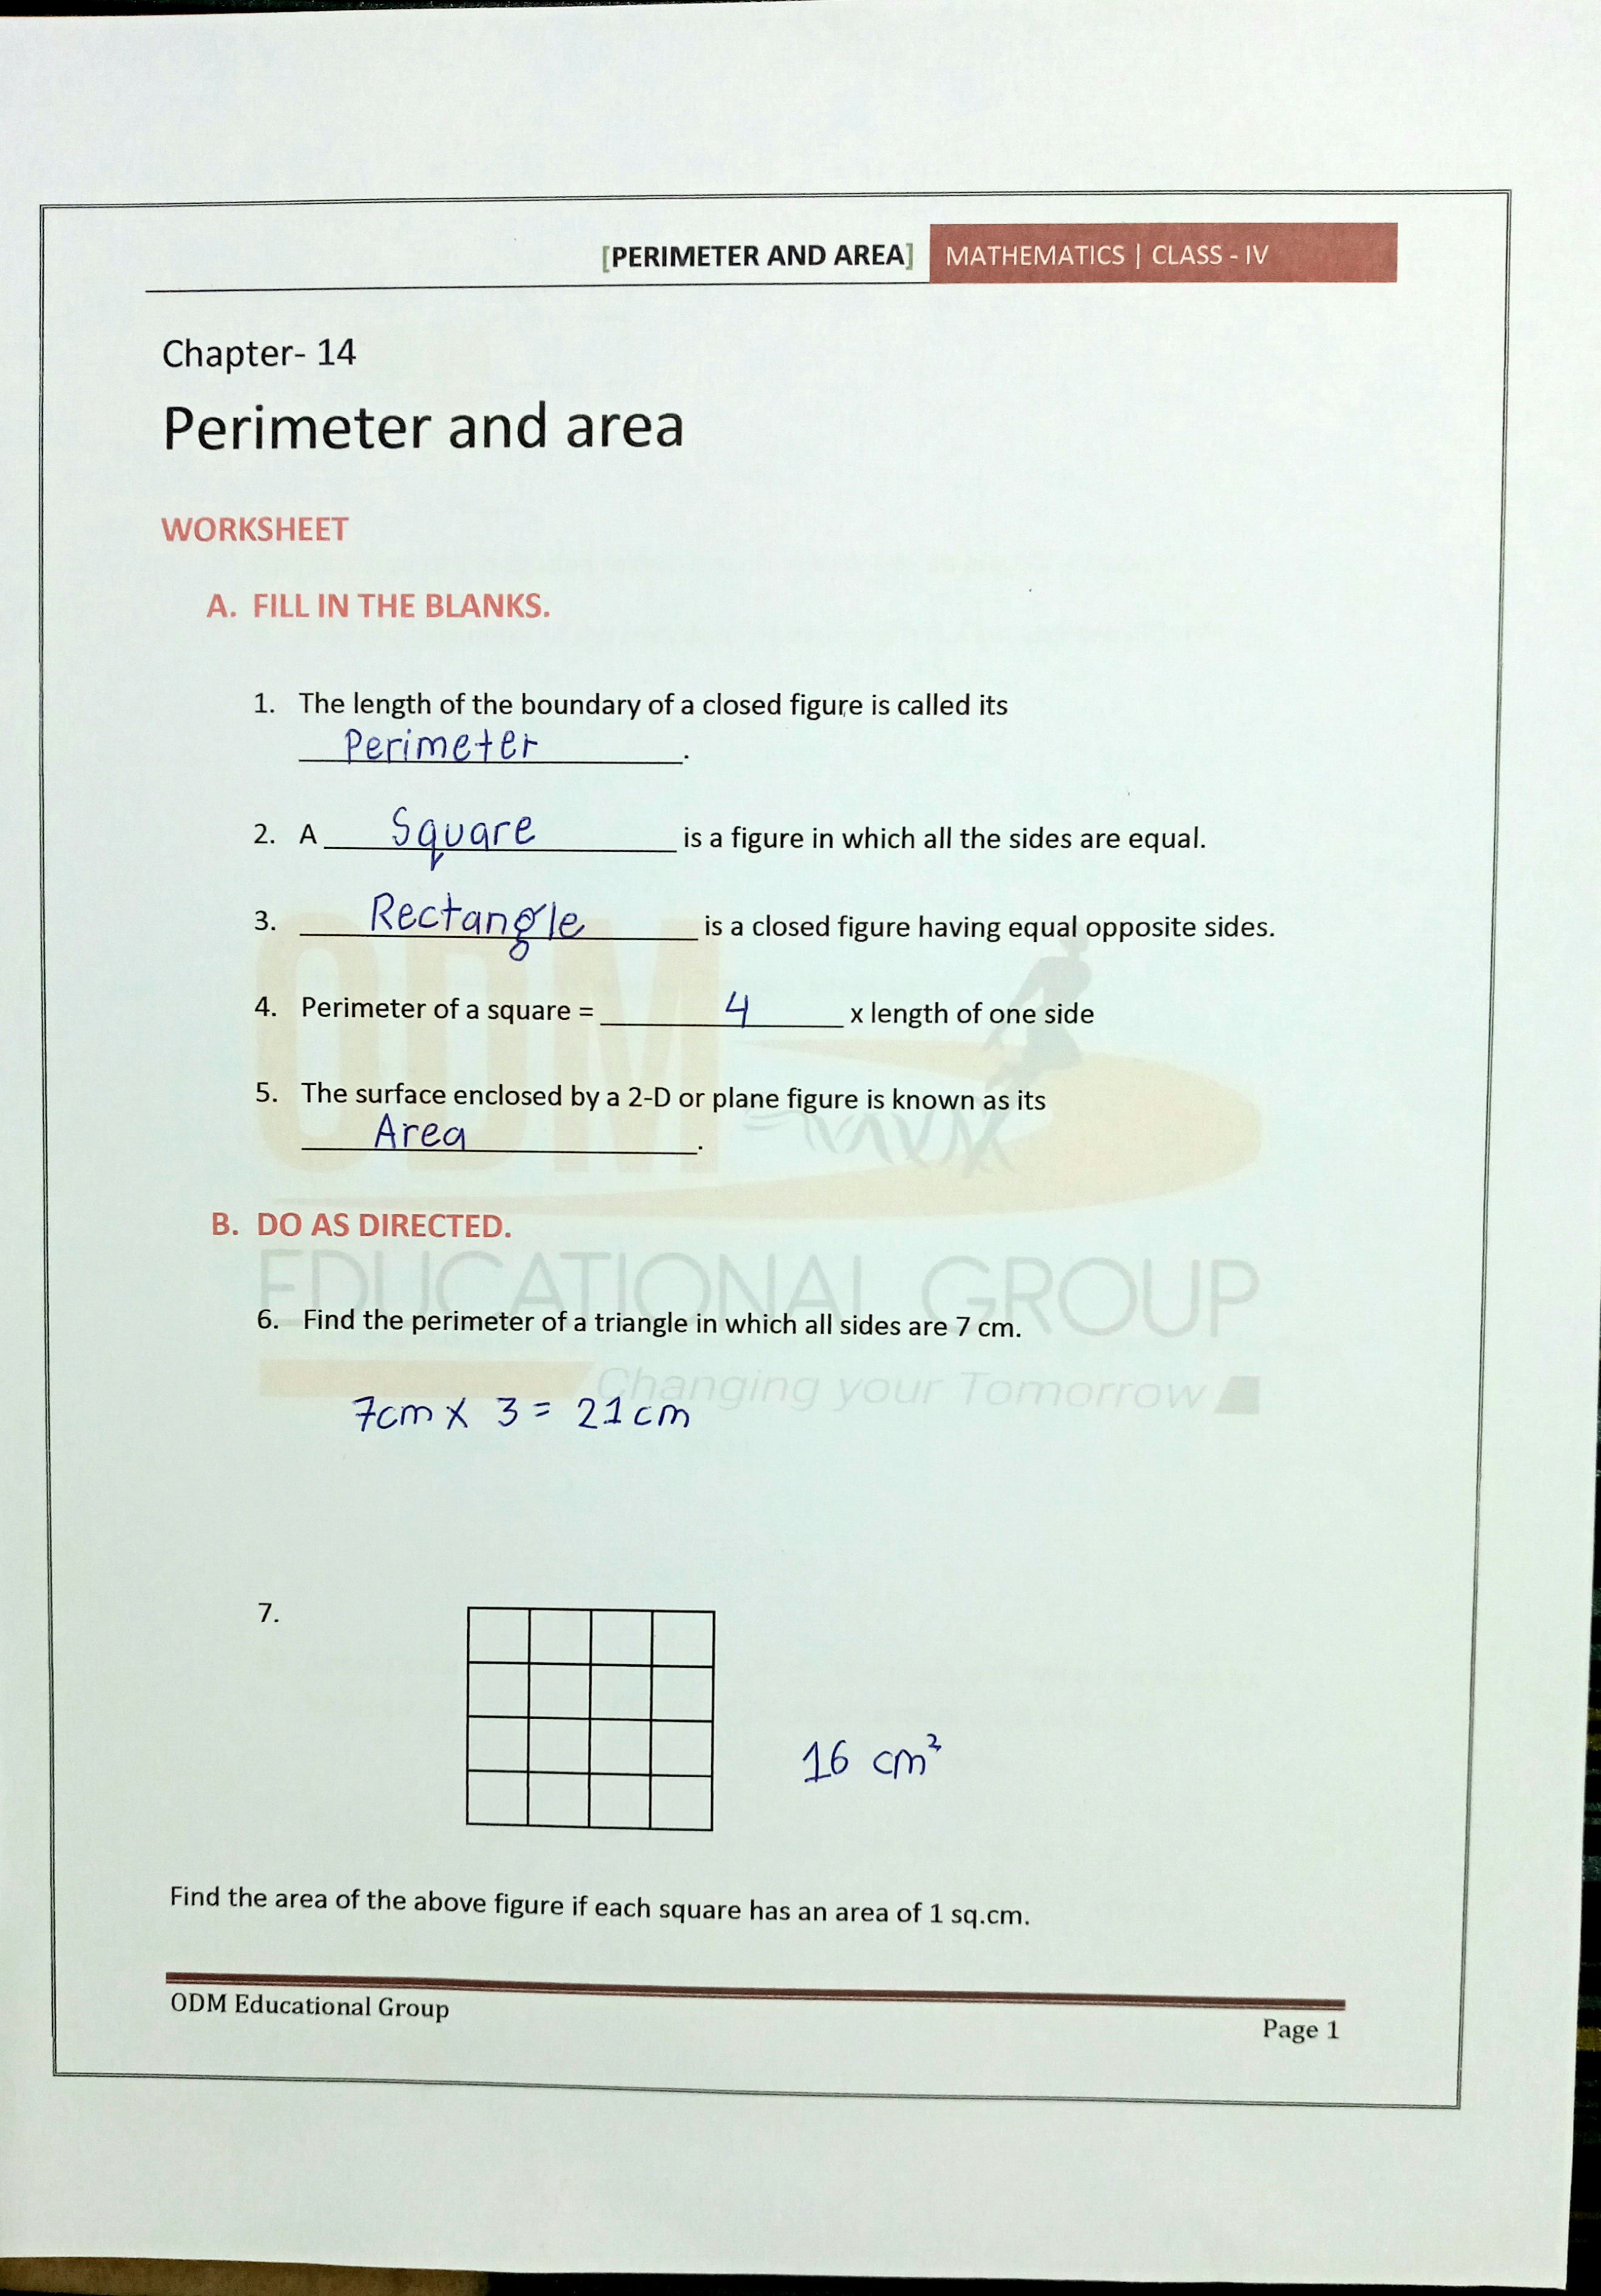 [PERIMETER AND AREA] MATHEMATICS | CLASS - IV
Chapter- 14
Perimeter and area
WORKSHEET
A. FILL IN THE BLANKS.
1. The length of the boundary of a closed figure is called its
Perimeter.
2. A Square is a figure in which all the sides are equal.
3. Rectangle is a closed figure having equal opposite sides.
4. Perimeter of a square = 4 x length of one side
5. The surface enclosed by a 2-D or plane figure is known as its
Area.
ODM
B. DO AS DIRECTED.
EDUCATIONAL GROUP
6. Find the perimeter of a triangle in which all sides are 7 cm.
Changing your Tomorrow
7cm x 3 = 21cm
7.
16 cm²
Find the area of the above figure if each square has an area of 1 sq.cm.
ODM Educational Group
Page 1